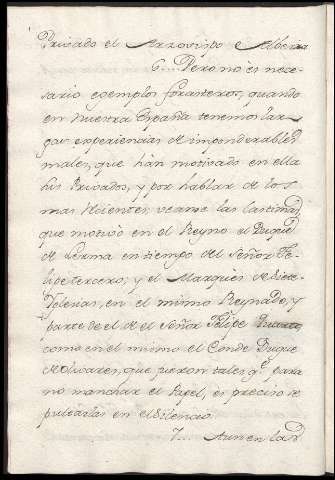 Privado el Arzovispo e Alberca
6.... Pero no es nece-
sario exemplos forasteros, quando
en Nuestra España tenemos lar-
gas experiencias de imponderables
males, que hàn motivado en ella
los Privados, y por hablar de los
mas recientes; veanse las lastimas,
que motivò en el Reyno el Duque
de Lerma en tiempo del Señor Fe-
lipe tercero; y el Marquès de Siete
Yglesias, en el mismo Reynado, y
parte de el de el Señor Felipe Quarto,
como en el mismo el Conde Duque
de Olivares, que fueron tales q.e para
no manchar el Papel, es preciso se-
pultarlas en el silencio.
7.... Aun en la